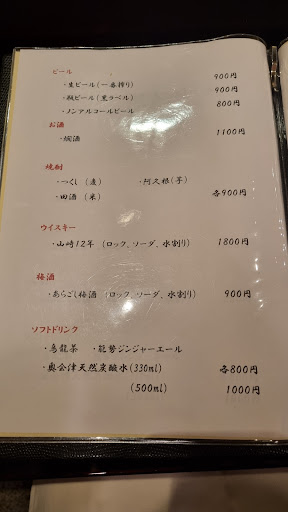 ビール
・生ビール(一番搾り) 900円
・瓶ビール(黒ラベル) 900円
・ノンアルコールビール 800円
お酒
・燗酒 1100円
焼酎
・つくし(麦) ・阿久根(芋)
・田酒(米) 各900円
ウイスキー
・山崎12年(ロック、ソーダ、水割り) 1800円
梅酒
・あらごし梅酒(ロック、ソーダ、水割り) 900円
ソフトドリンク
・烏龍茶 ・能勢ジンジャーエール
・奥会津天然炭酸水(330ml) 各800円
(500ml) 1000円